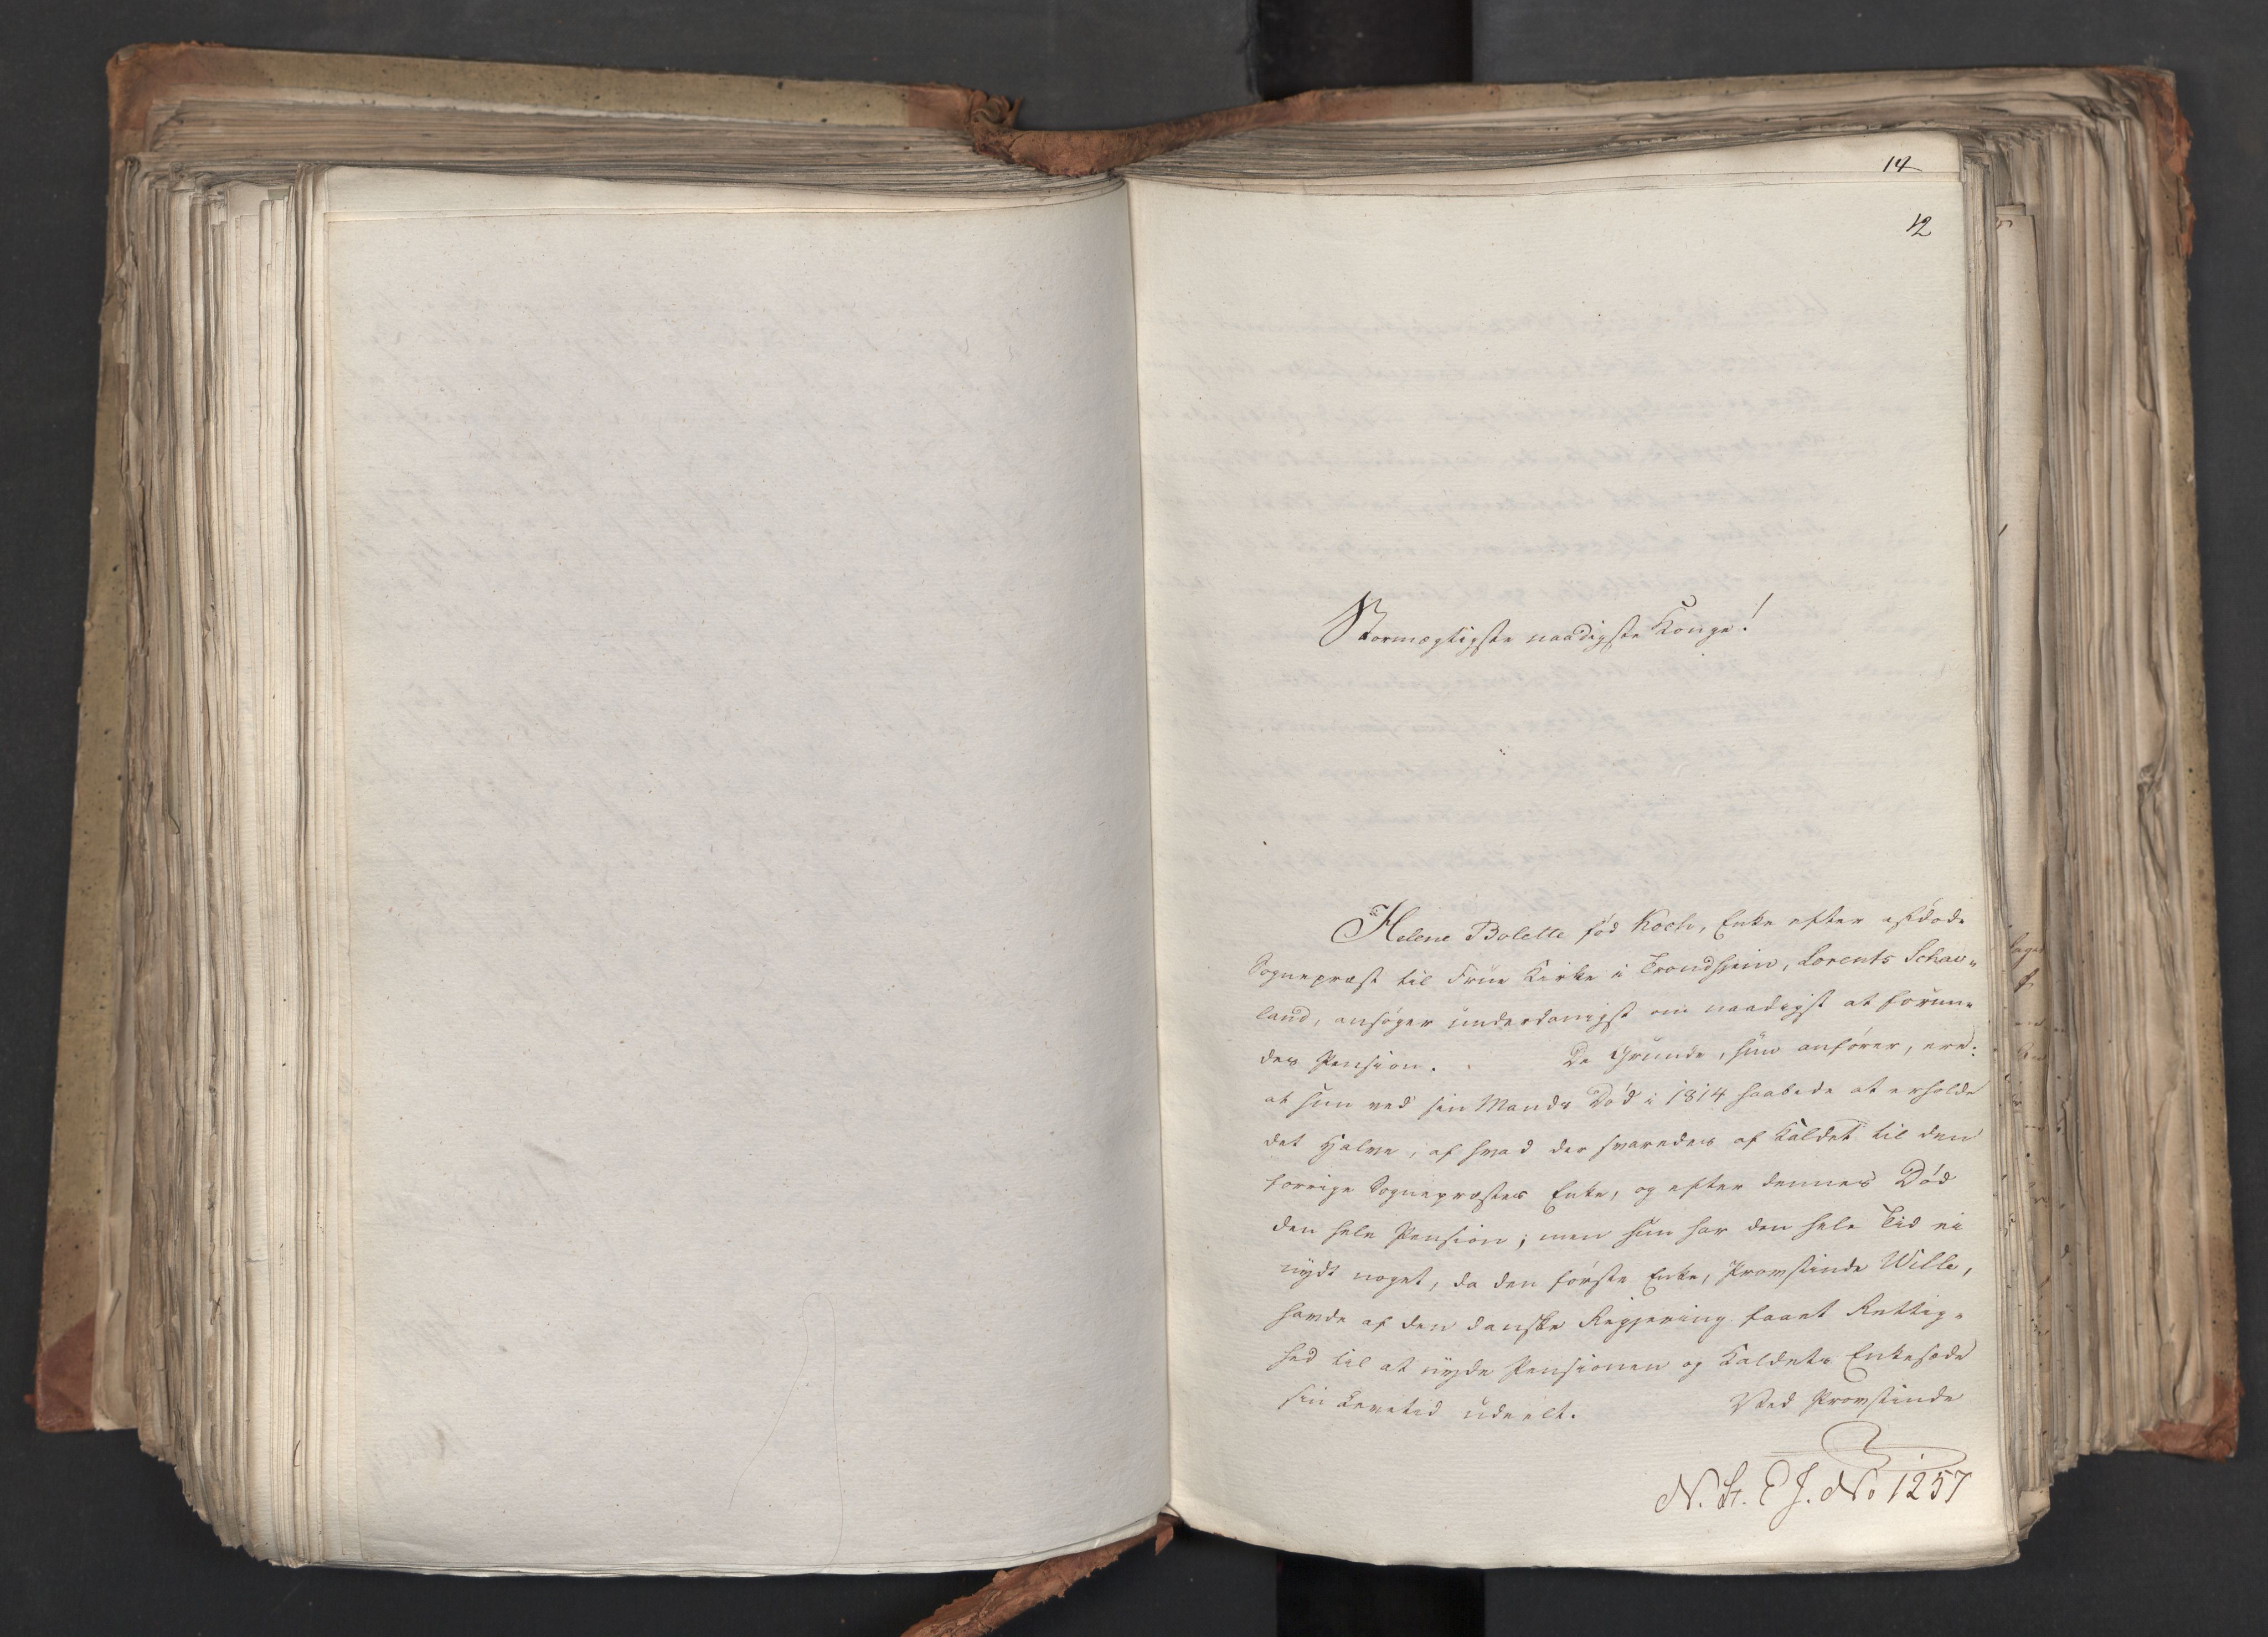 14
12
Stormægtigste naadigste Konge!
Helene Bolette fød Koch, Enke efter afdøde
Sognepræst til Frue Kirke i Trondhjem, Lorents Schau-
land, ansøger underdanigst om naadigst at forun-
des Pension. De Grunde, hun anfører, ere:
at hun ved sin Mands Død i 1814 haabede at erholde
det Halve, af hvad der svaredes af Kaldet til den
forrige Sognepræstes Enke, og efter dennes Død
den hele Pension; men hun har den hele Tid ei
nydt noget, da den første Enke, Provstinde Wille,
havde af den danske Regjering faaet Rettig-
hed til at nyde Pensionen og Kaldets Enkesæde
sin Levetid udeelt. Ved Provstinde
N. St. E J. No 1257